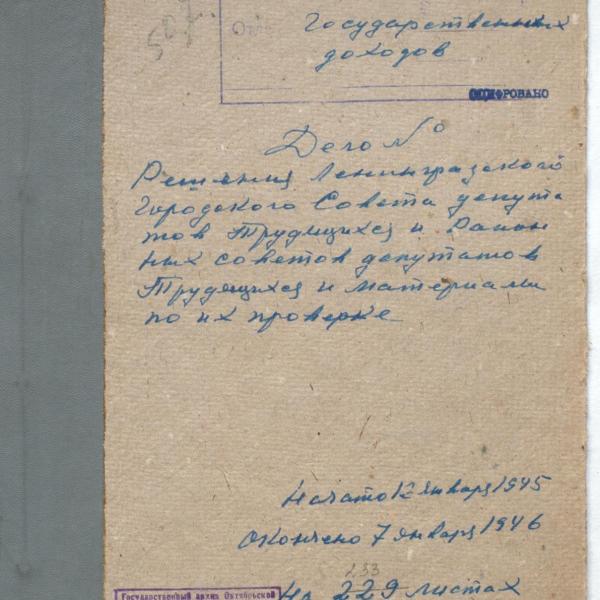 507.
Государственных
доходов
ОЦИФРОВАНО
Дело №
Решения Ленинградского
Городского Совета депута
тов Трудящихся и Район
ных советов депутатов
Трудящихся и материалы
по их проверке
Начато 12 января 1945
Окончено 7 января 1946
233
На 229 листах
Государственный архив Октябрьской